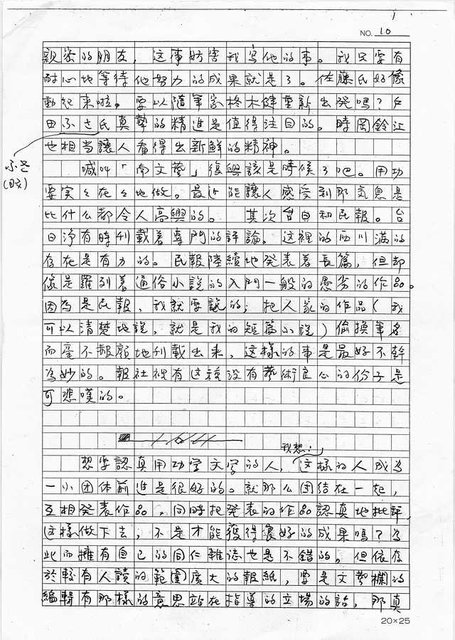 NO. 10
親密的朋友，這事妨害我寫他的事。我只要有
耐心地等待他努力的成果就是了。佐藤氏好像
動起來啦。要以隨軍宗鈴木肆重新出發嗎？戶
田ふさ氏真摯的精進是值得注目的。時岡鈴江
也相當讓人看得出新鮮的精神。
ふさ
(日文)
喊叫「南文藝」復興該是時候了吧。用功
要實々在々地做。最近能讓人感受到那氣息是
比什么都令人高興的。 其次台日和民報。台
日淨有時刊載着專門的評論。這裡的西川滿的
存在是有力的。民報陸續地発表着長篇，但却
像是羅列着通俗小說的入門一般的愚劣的作品。
因為是民報，我就要說的；把人家的作品（我
可以清楚地說，就是我的短篇小說）偷換筆名
而虛不報顧地刊載出來，這樣的事是最好不幹
為妙的。報社裡有這種沒有藝術良心的份子是
可悲嘆的。
我想：
想要認真用功學文学的人，這樣的人成為
一小团体前進是很好的。就那么团结在一起，
互相発表作品，同時把発表的作品認真地批評，
這樣做下去，不是才能獲得良好的成果嗎？因
此而擁有自己的同仁雜誌也是不錯的。但依存
於較有人讀的範圍廣大的報紙，當是文藝欄的
編輯有那樣的意思站在指導的立場的話，那真
20×25